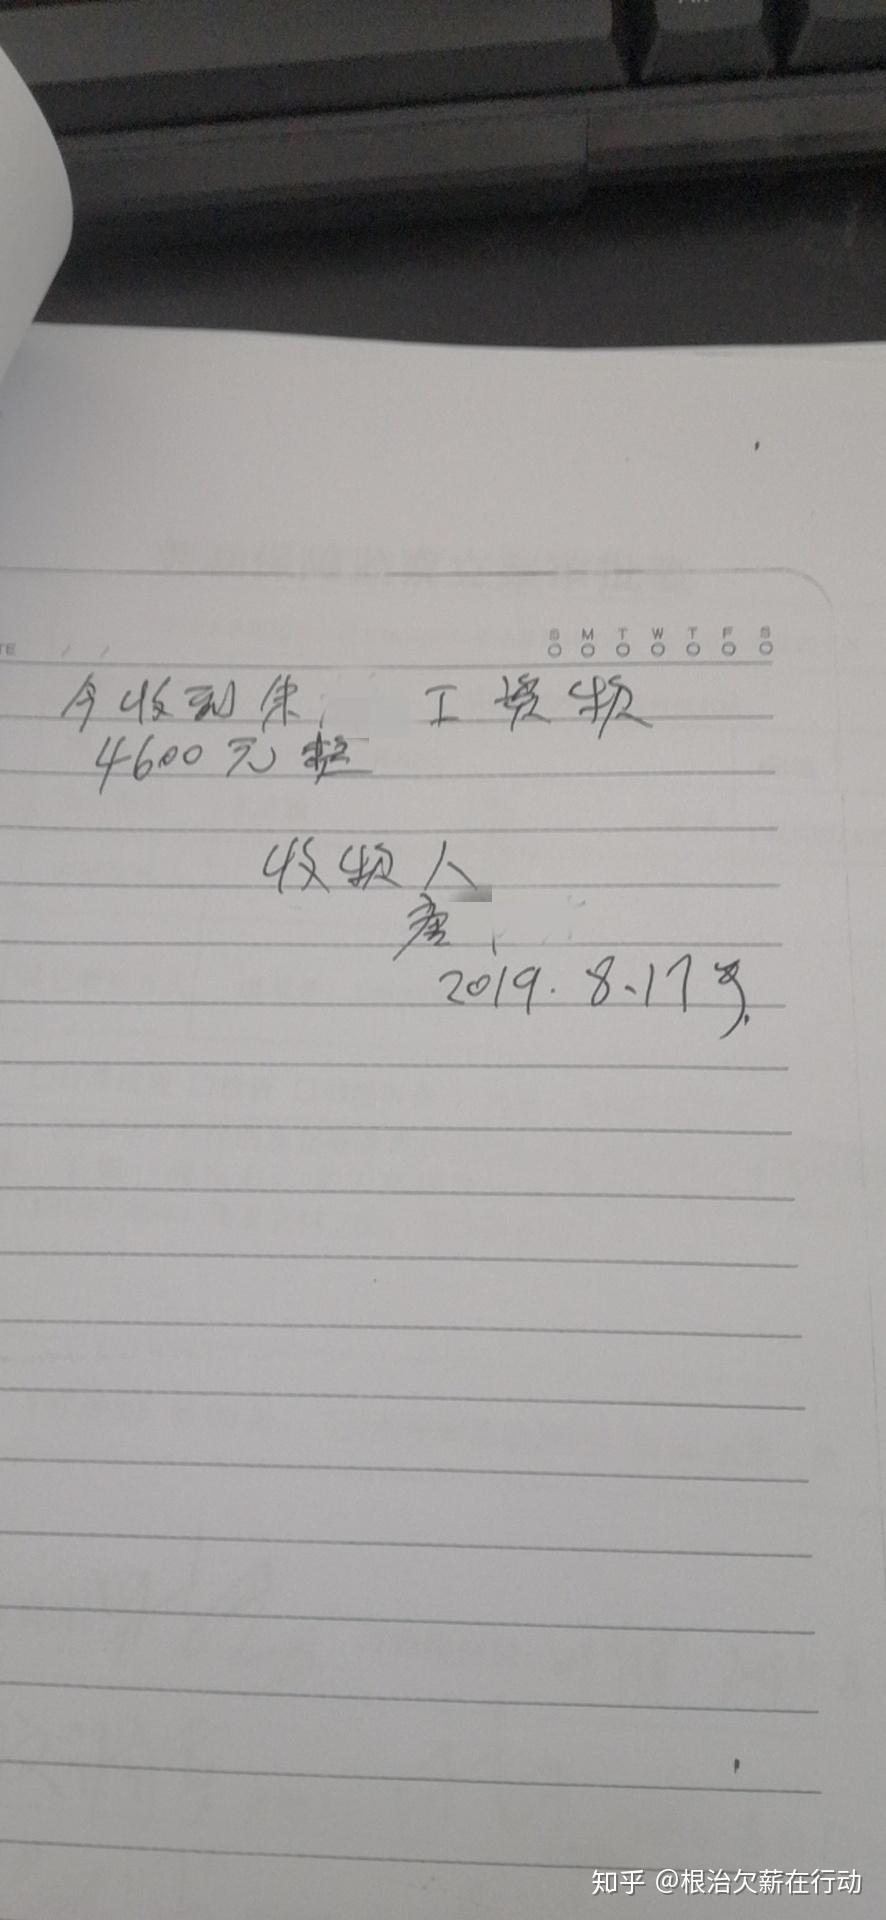 TE / /
S M T W T F S
今收到朱 工资款
4600元整
收款人
唐
2019.8.17号.
知乎 @根治欠薪在行动